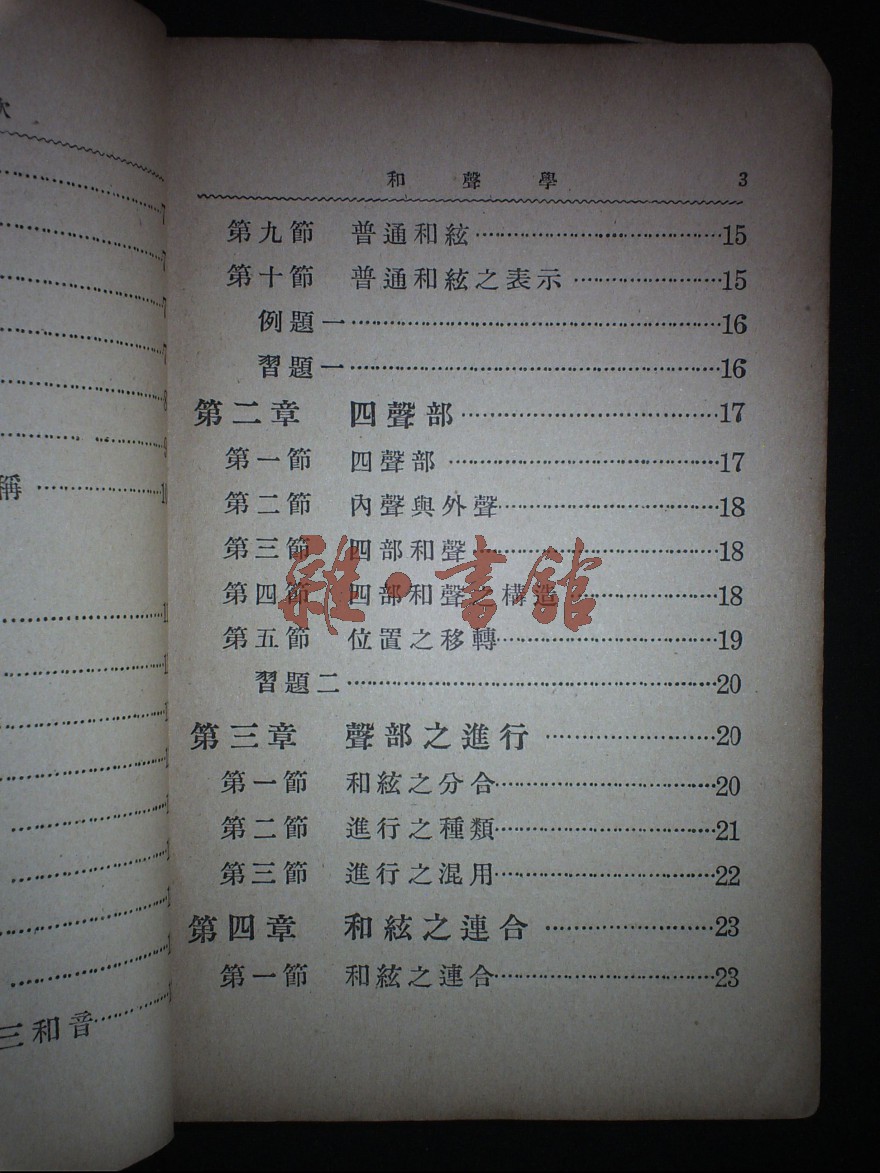 和聲學 3
第九節 普通和絃……15
第十節 普通和絃之表示……15
例題一……16
習題一……16
第二章 四聲部……17
第一節 四聲部……17
第二節 內聲與外聲……18
第三節 四部和聲……18
第四節 四部和聲之構造……18
第五節 位置之移轉……19
習題二……20
第三章 聲部之進行……20
第一節 和絃之分合……20
第二節 進行之種類……21
第三節 進行之混用……22
第四章 和絃之連合……23
第一節 和絃之連合……23
雜·書館
7
7
7
7
8
9
稱
三和音